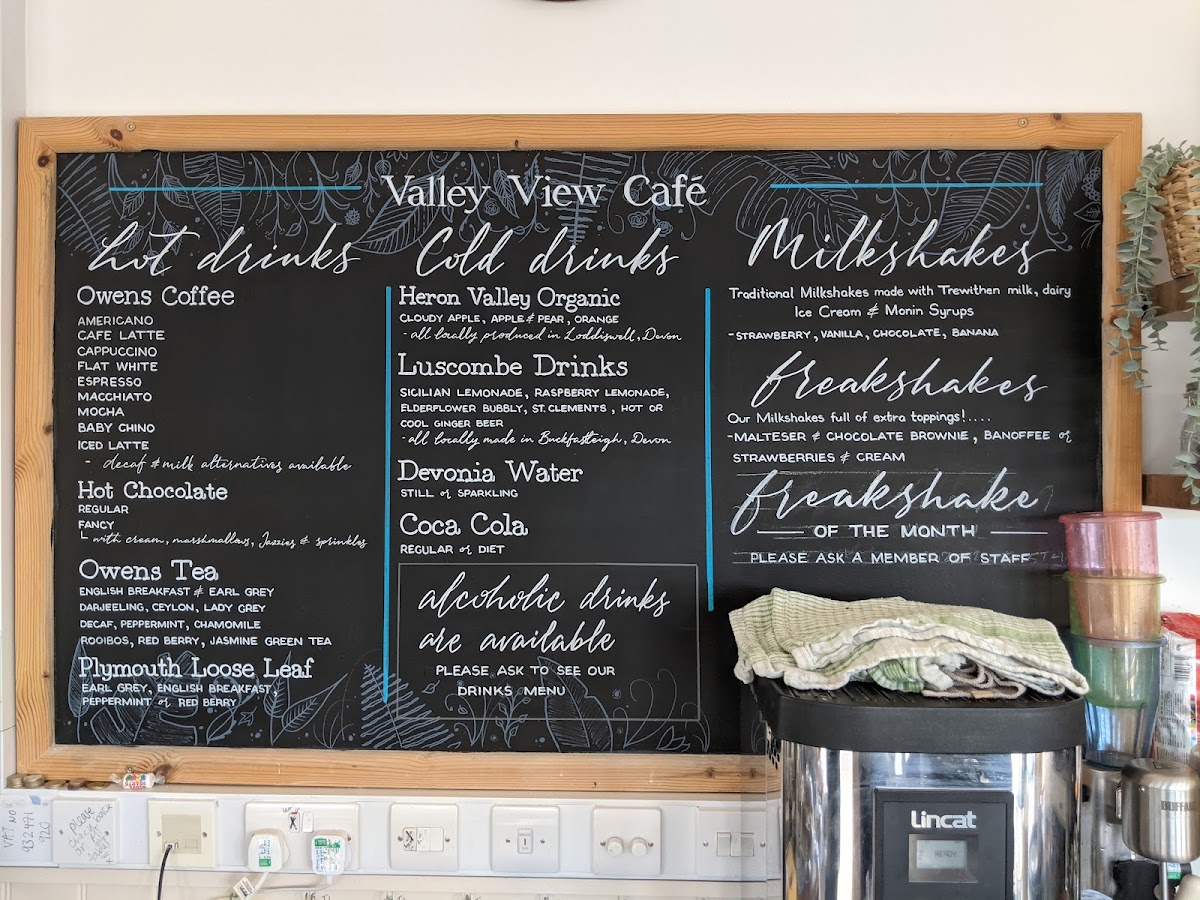 Valley View Café
hot drinks
Owens Coffee
AMERICANO
CAFE LATTE
CAPPUCCINO
FLAT WHITE
ESPRESSO
MACCHIATO
MOCHA
BABY CHINO
ICED LATTE
- decaf & milk alternatives available
Hot Chocolate
REGULAR
FANCY
with cream, marshmallows, Jazzies & sprinkles
Owens Tea
ENGLISH BREAKFAST & EARL GREY
DARJEELING, CEYLON, LADY GREY
DECAF, PEPPERMINT, CHAMOMILE
ROOIBOS, RED BERRY, JASMINE GREEN TEA
Plymouth Loose Leaf
EARL GREY, ENGLISH BREAKFAST,
PEPPERMINT or RED BERRY
Cold drinks
Heron Valley Organic
CLOUDY APPLE, APPLE & PEAR, ORANGE
- all locally produced in Loddiswell, Devon
Luscombe Drinks
SICILIAN LEMONADE, RASPBERRY LEMONADE,
ELDERFLOWER BUBBLY, ST. CLEMENTS, HOT OR
COOL GINGER BEER
- all locally made in Buckfastleigh, Devon
Devonia Water
STILL or SPARKLING
Coca Cola
REGULAR or DIET
alcoholic drinks
are available
PLEASE ASK TO SEE OUR
DRINKS MENU
Milkshakes
Traditional Milkshakes made with Trewithen milk, dairy
Ice Cream & Monin Syrups
- STRAWBERRY, VANILLA, CHOCOLATE, BANANA
freakshakes
Our Milkshakes full of extra toppings!....
- MALTESER & CHOCOLATE BROWNIE, BANOFFEE or
STRAWBERRIES & CREAM
freakshake
OF THE MONTH
PLEASE ASK A MEMBER OF STAFF
Lincat
READY
VAT NO
932 471
920
please